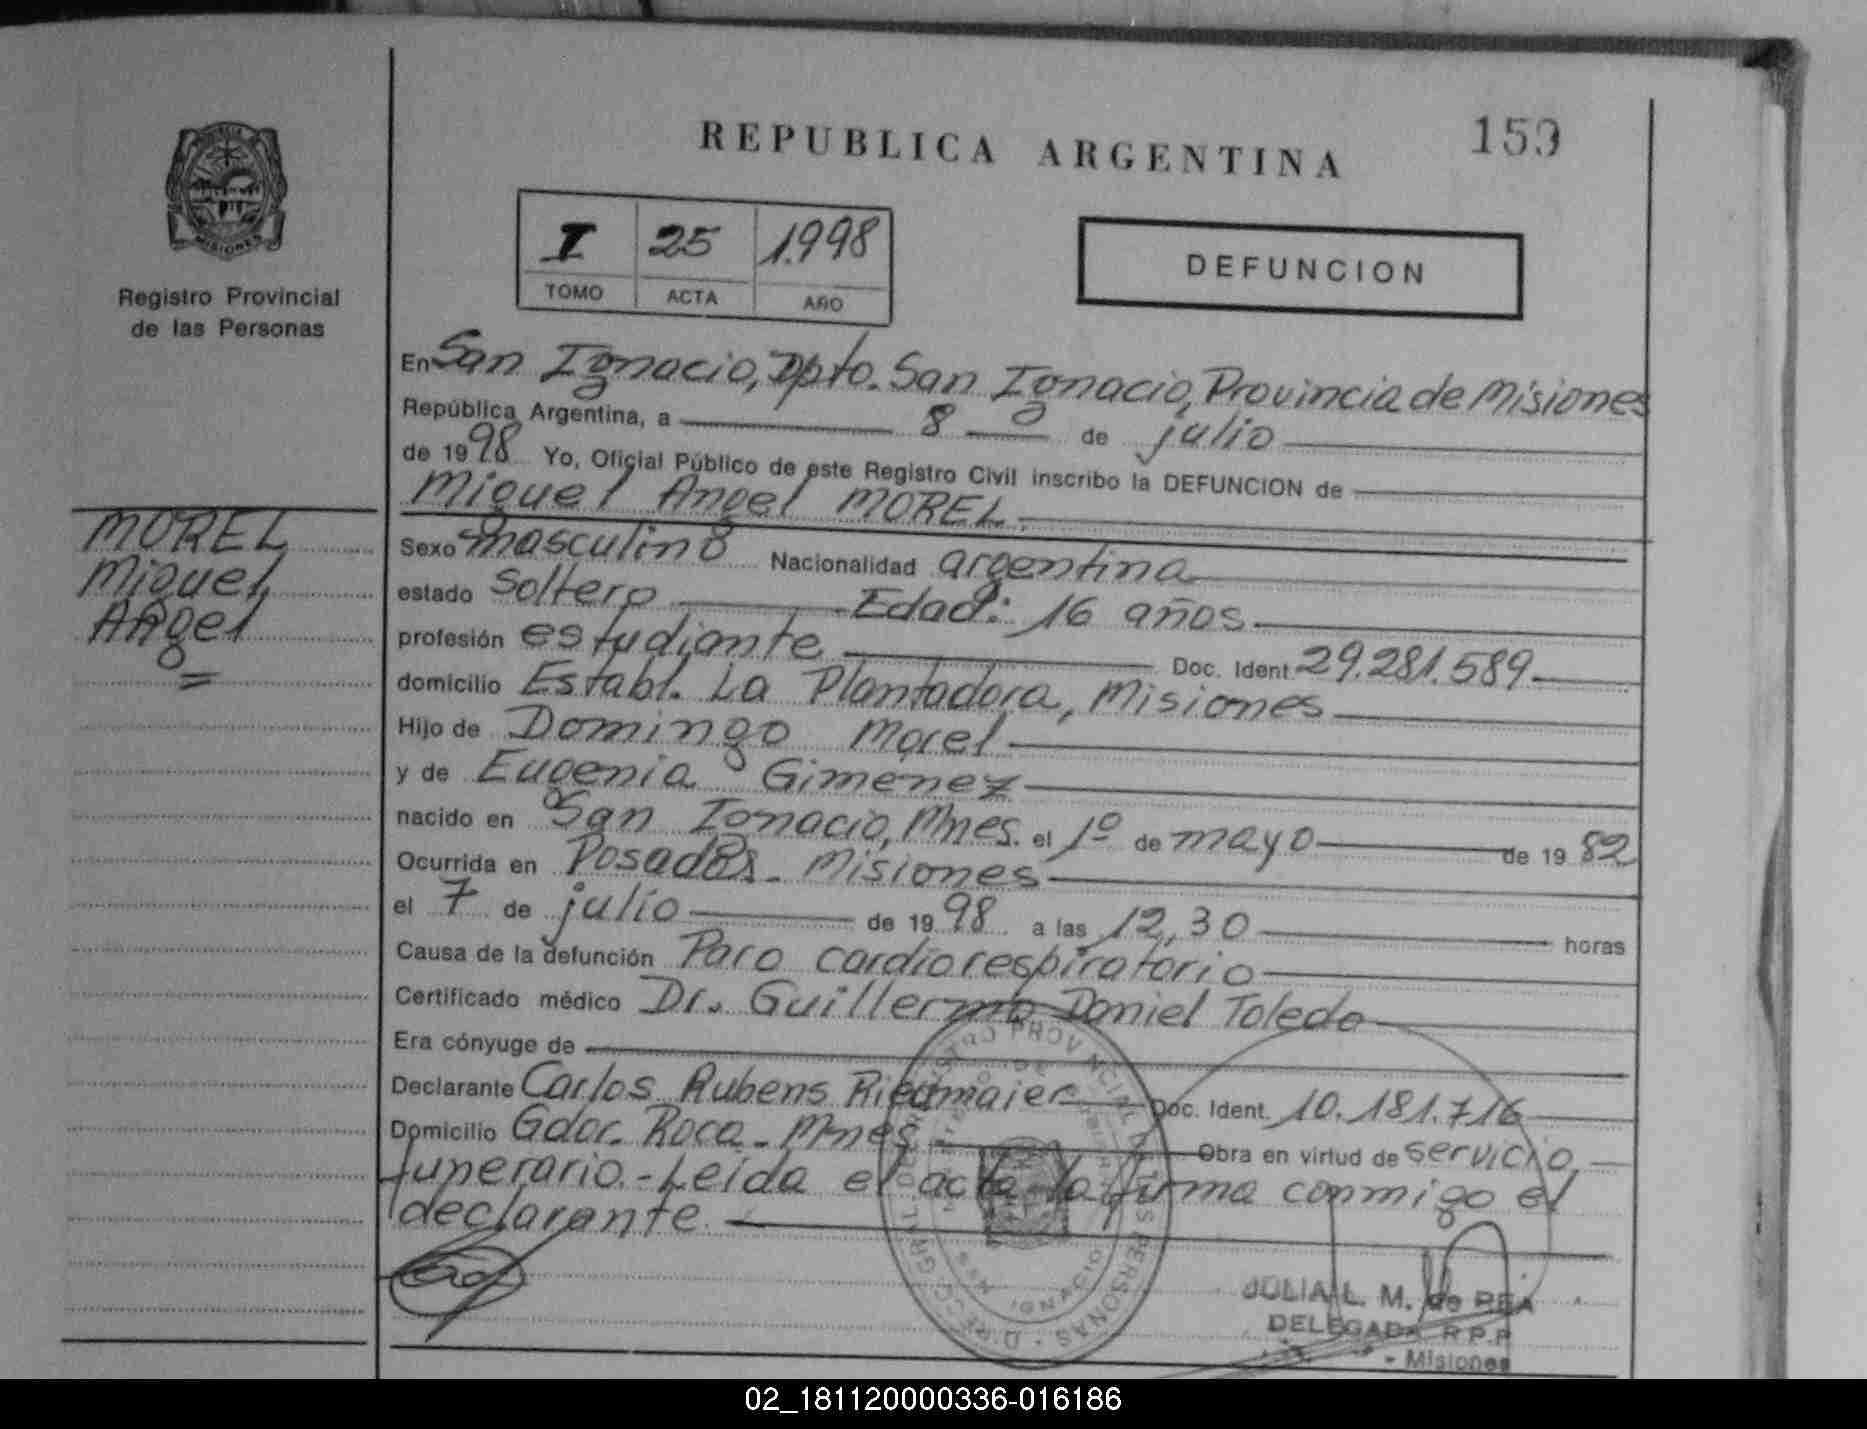 REPUBLICA ARGENTINA
159
PROVINCIA
MISIONES
Registro Provincial
de las Personas
I 25 1.998
TOMO ACTA AÑO
DEFUNCION
En San Ignacio, Dpto. San Ignacio, Provincia de Misiones
República Argentina, a 8 de julio
de 1998 Yo, Oficial Público de este Registro Civil inscribo la DEFUNCION de
Miguel Angel MOREL
MOREL
Miguel
Angel
=
Sexo masculino Nacionalidad argentina
estado soltero Edad: 16 años
profesión estudiante Doc. Ident. 29.281.589.
domicilio Establ. La Plantadora, Misiones
Hijo de Domingo Morel
y de Eugenia Gimenez
nacido en San Ignacio, Mnes. el 1º de mayo de 1982
Ocurrida en Posadas - Misiones
el 7 de julio de 1998 a las 12,30 horas
Causa de la defunción Paro cardiorespiratorio
Certificado médico Dr. Guillermo Daniel Toledo
Era cónyuge de
Declarante Carlos Rubens Riedmaier Doc. Ident. 10.181.716
Domicilio Gdor. Roca - Mnes. Obra en virtud de servicio
funerario.- Leída el acta la firma conmigo el
declarante.
JULIA L. M. de REA
DELEGADA R.P.P.
- Misiones
02_181120000336-016186